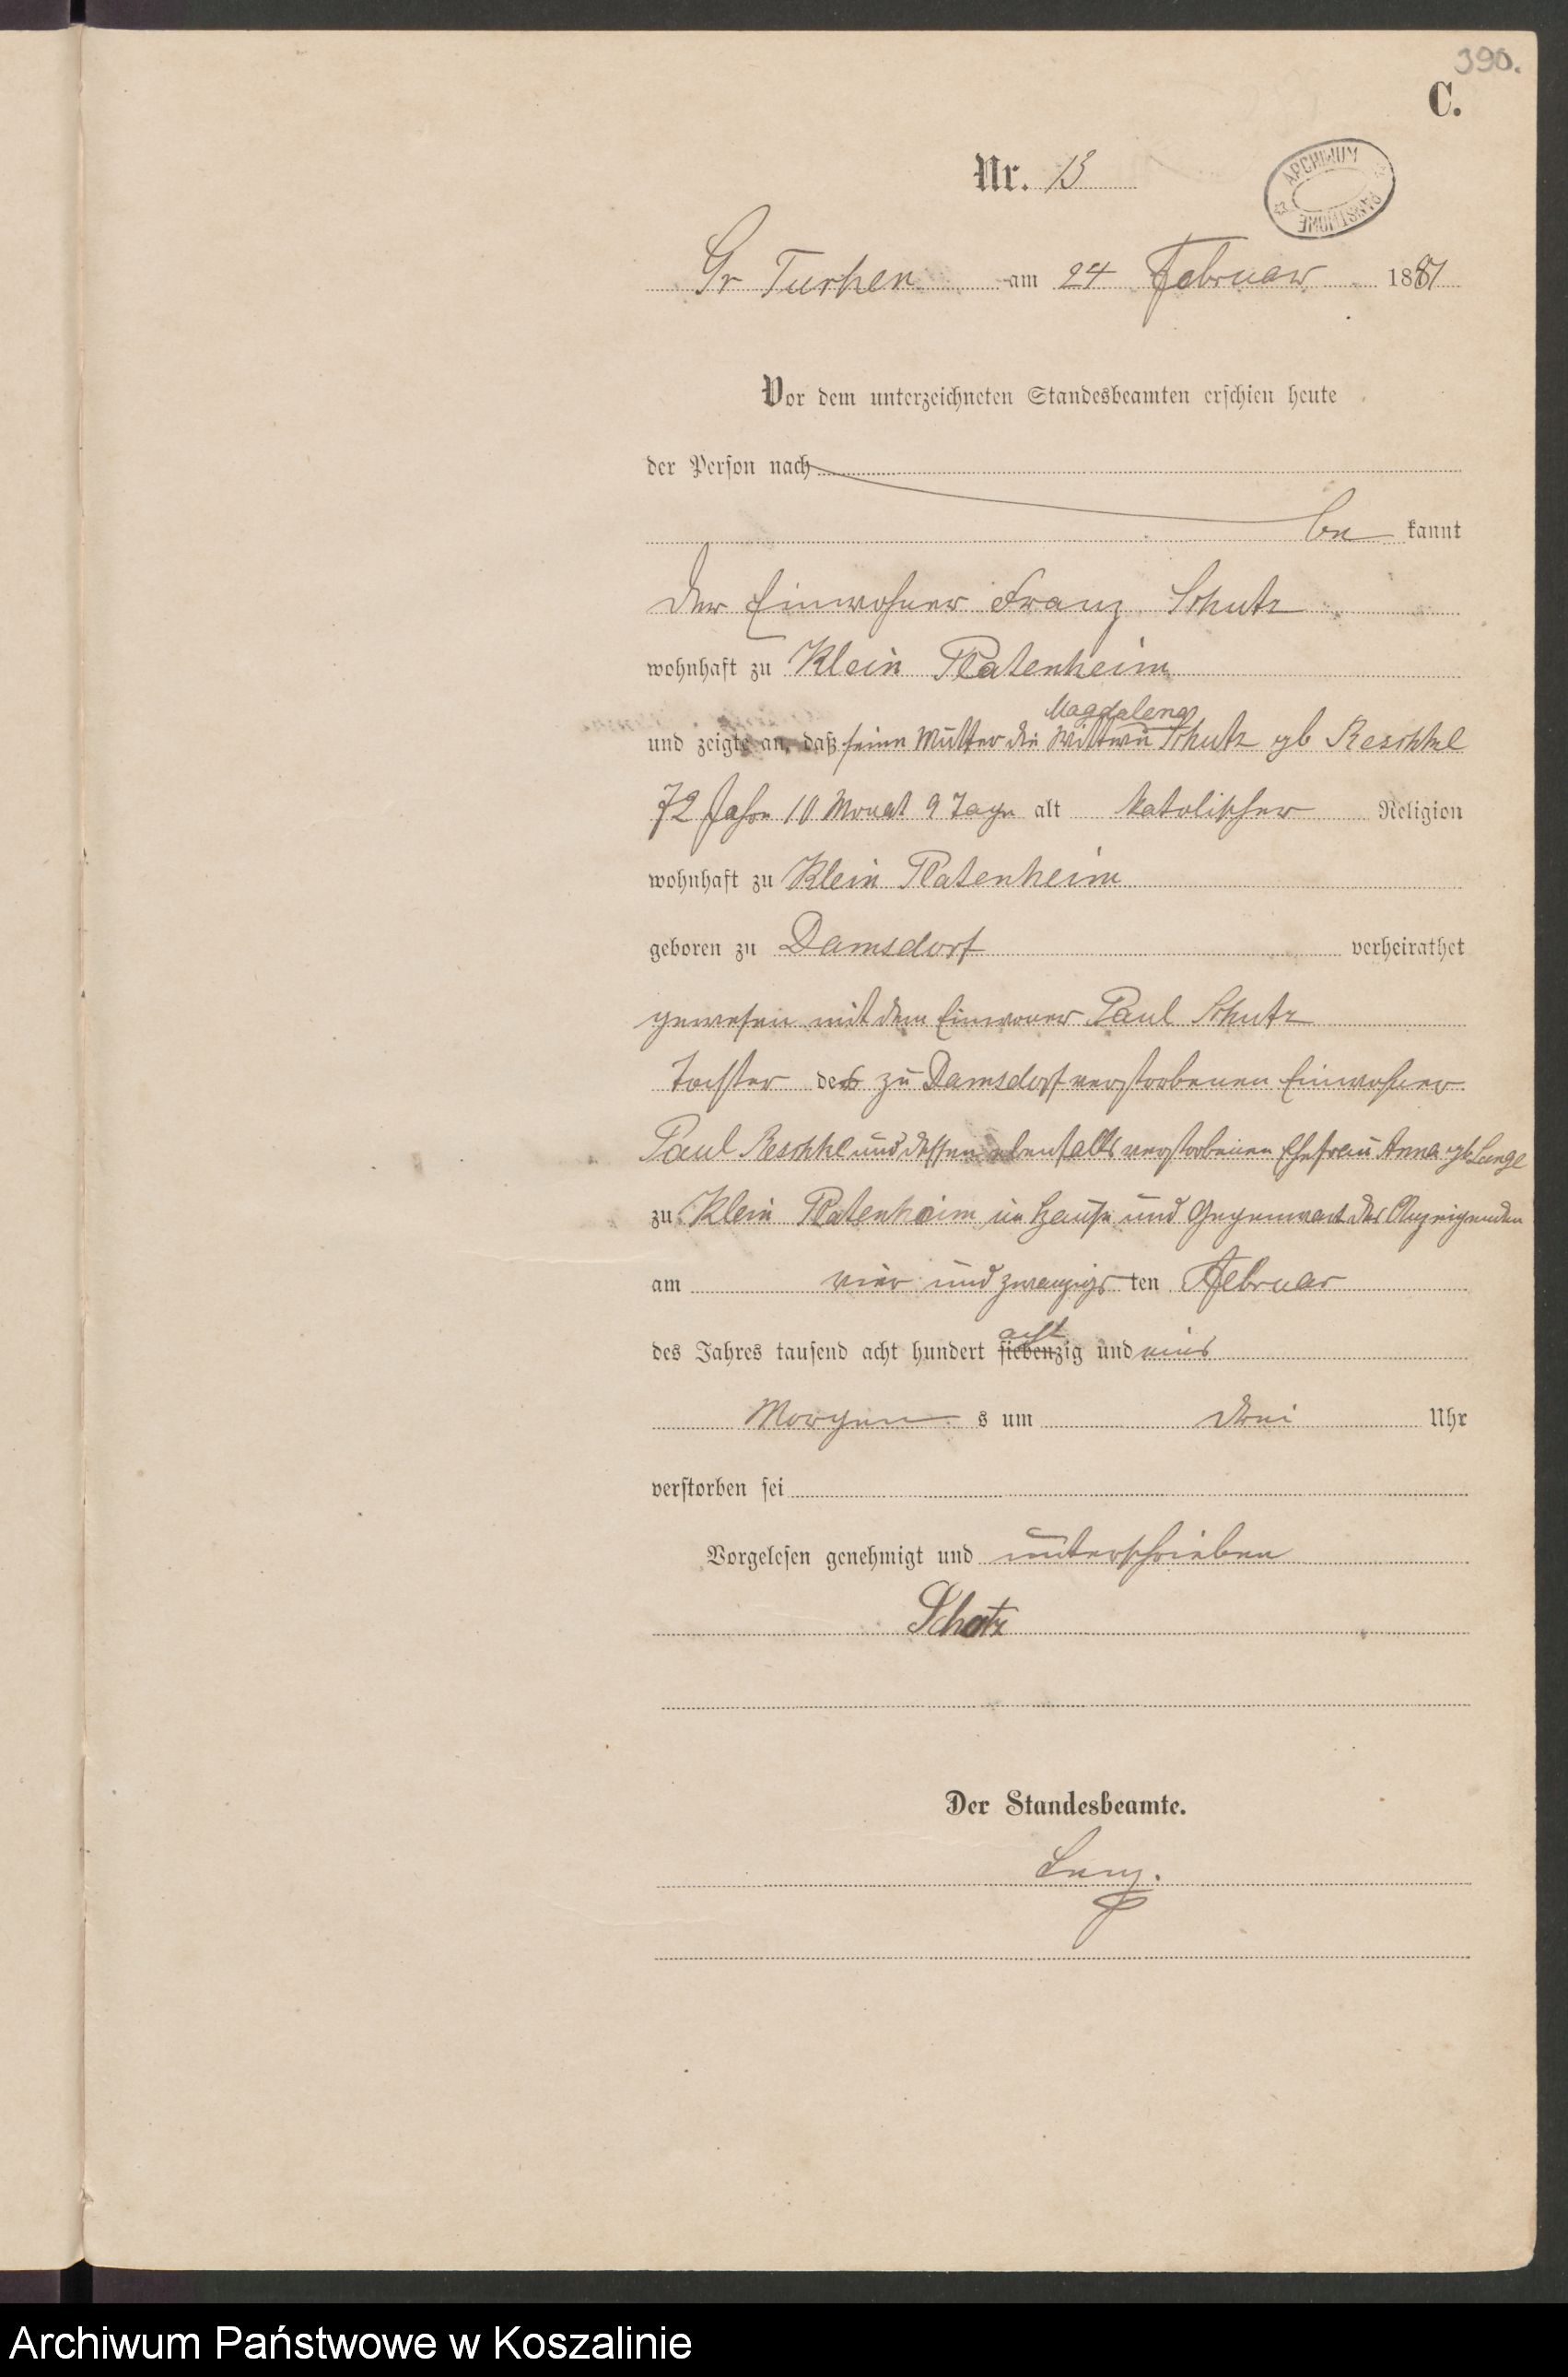 390.
C.
Nr. 13
ARCHIWUM PAŃSTWOWE
Gr Turhen am 24 Februar 1881
Vor dem unterzeichneten Standesbeamten erschien heute
der Person nach
be kannt
der Einwohner Franz Schutz
wohnhaft zu Klein Platenheim
Magdalena
und zeigte an, daß seine Mutter die Wittwe Schutz gb Reschkel
72 Jahre 10 Monat 9 Tage alt katolischer Religion
wohnhaft zu Klein Platenheim
geboren zu Damsdorf verheirathet
gewesen mit dem Einwoner Paul Schutz
Tochter des zu Damsdorf verstorbenen Einwohner
Paul Reschkel und dessen ebenfalls verstorbenen Ehefrau Anna gb Lange
zu Klein Platenheim im Hause und Gegenwart des Anzeigenden
am vier und zwanzigs ten Februar
acht
des Jahres tausend acht hundert siebenzig und eins
Morgen s um drei Uhr
verstorben sei
Vorgelesen genehmigt und unterschrieben
Schatz
Der Standesbeamte.
Archiwum Państwowe w Koszalinie